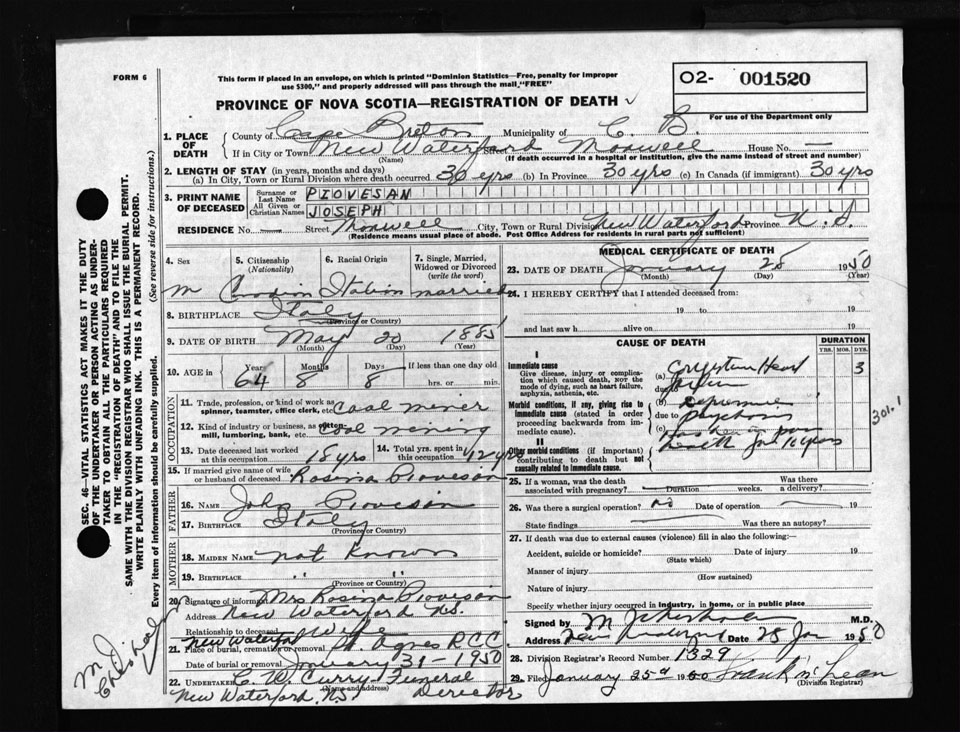 FORM 6
This form if placed in an envelope, on which is printed "Dominion Statistics—Free, penalty for improper
use $300," and properly addressed will pass through the mail "FREE"
O2- 001520
For use of the Department only
PROVINCE OF NOVA SCOTIA—REGISTRATION OF DEATH
1. PLACE OF DEATH
County of Cape Breton Municipality of C. B.
If in City or Town New Waterford Street House No. —
(Name) (If death occurred in a hospital or institution, give the name instead of street and number)
2. LENGTH OF STAY (in years, months and days)
(a) In City, Town or Rural Division where death occurred 30 yrs (b) In Province 30 yrs (c) In Canada (if immigrant) 30 yrs
3. PRINT NAME OF DECEASED
Surname or Last Name PIOVESAN
All Given or Christian Names JOSEPH
RESIDENCE No. — Street City, Town or Rural Division New Waterford Province N. S.
(Residence means usual place of abode. Post Office Address for residents in rural parts not sufficient)
4. Sex 5. Citizenship (Nationality) 6. Racial Origin 7. Single, Married, Widowed or Divorced (write the word)
m Canadian Italian married
8. BIRTHPLACE Italy
(Province or Country)
9. DATE OF BIRTH May 20 1885
(Month) (Day) (Year)
10. AGE in Years Months Days If less than one day old
64 8 8 hrs. or min.
OCCUPATION
11. Trade, profession, or kind of work as spinner, teamster, office clerk, etc. Coal miner
12. Kind of industry or business, as cotton-mill, lumbering, bank, etc. Coal mining
13. Date deceased last worked at this occupation 18 yrs 14. Total yrs. spent in this occupation 12 yrs
15. If married give name of wife or husband of deceased Rosina Piovesan
FATHER
16. Name John Piovesan
17. Birthplace Italy
(Province or Country)
MOTHER
18. Maiden Name not Known
19. Birthplace " "
(Province or Country)
20. Signature of informant Mrs Rosina Piovesan
Address New Waterford N.S.
Relationship to deceased Wife
21. Place of burial, cremation or removal New Waterford St. Agnes R.C.C
Date of burial or removal January 31 - 1950
22. Undertaker C. W. Curry Funeral
(Name and address)
New Waterford N.S. Director
MEDICAL CERTIFICATE OF DEATH
23. DATE OF DEATH January 28 1950
(Month) (Day) (Year)
24. I HEREBY CERTIFY that I attended deceased from:
19 to 19
and last saw h alive on 19
CAUSE OF DEATH
DURATION
YRS. MOS. DYS.
I
Immediate cause
Give disease, injury or complication which caused death, not the mode of dying, such as heart failure, asphyxia, asthenia, etc.
(a) Congestive Heart
failure
3
due to
Morbid conditions, if any, giving rise to immediate cause (stated in order proceeding backwards from immediate cause).
(b) Depressive
due to psychosis
301.1
(c) Has been in poor
health for 10 years
II
Other morbid conditions (if important) contributing to death but not causally related to immediate cause.
25. If a woman, was the death associated with pregnancy? — Duration weeks Was there a delivery?
26. Was there a surgical operation? no Date of operation 19
State findings Was there an autopsy?
27. If death was due to external causes (violence) fill in also the following:—
Accident, suicide or homicide? Date of injury 19
(State which)
Manner of injury
(How sustained)
Nature of injury
Specify whether injury occurred in industry, in home, or in public place
Signed by M.D.
Address New Waterford Date 28 Jan 1950
28. Division Registrar's Record Number 1329
29. Filed January 1950 Frank McLean
(Division Registrar)
SEC. 46—VITAL STATISTICS ACT MAKES IT THE DUTY
OF THE UNDERTAKER OR PERSON ACTING AS UNDER-
TAKER TO OBTAIN ALL THE PARTICULARS REQUIRED
IN THE "REGISTRATION OF DEATH" AND TO FILE THE
SAME WITH THE DIVISION REGISTRAR WHO SHALL ISSUE THE BURIAL PERMIT.
WRITE PLAINLY WITH UNFADING INK. THIS IS A PERMANENT RECORD.
Every item of information should be carefully supplied. (See reverse side for instructions.)